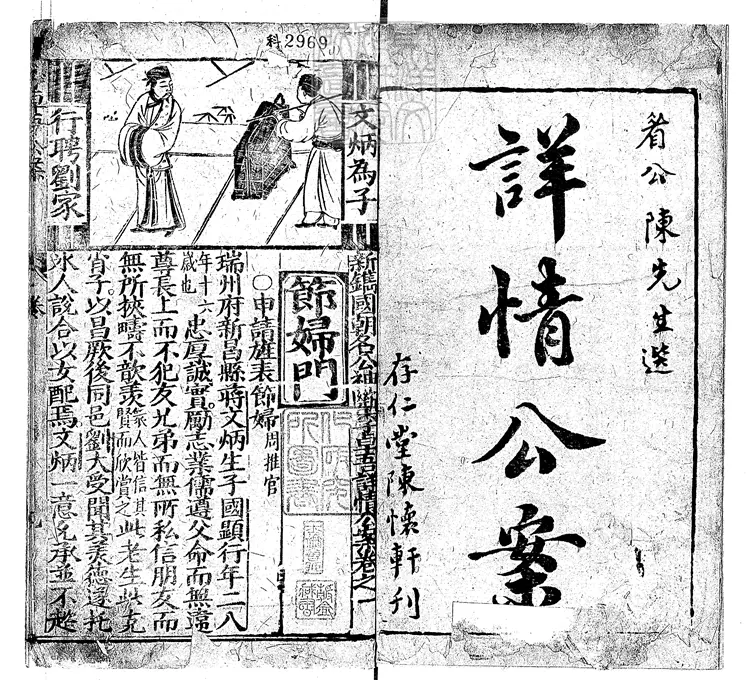 眉公陳先生選
詳情公案
存仁堂陳懷軒刊
科2969
文炳為子
行聘劉家
新鐫國朝名公神斷陳眉公詳情公案卷之一
節婦門
○申請旌表節婦 周推官
瑞州府新昌縣蔣文炳生子國顯行年二八
年十六歲也忠厚誠實勵志業儒遵父命而無違
尊長上而不犯友兄弟而無所私信朋友而
無所挾疇不歆羨家人皆信其賢而欣賞之此老生此克
肖子以昌厥後同邑劉大受聞其美德遂托
冰人說合以女配焉文炳一意允承並不趑